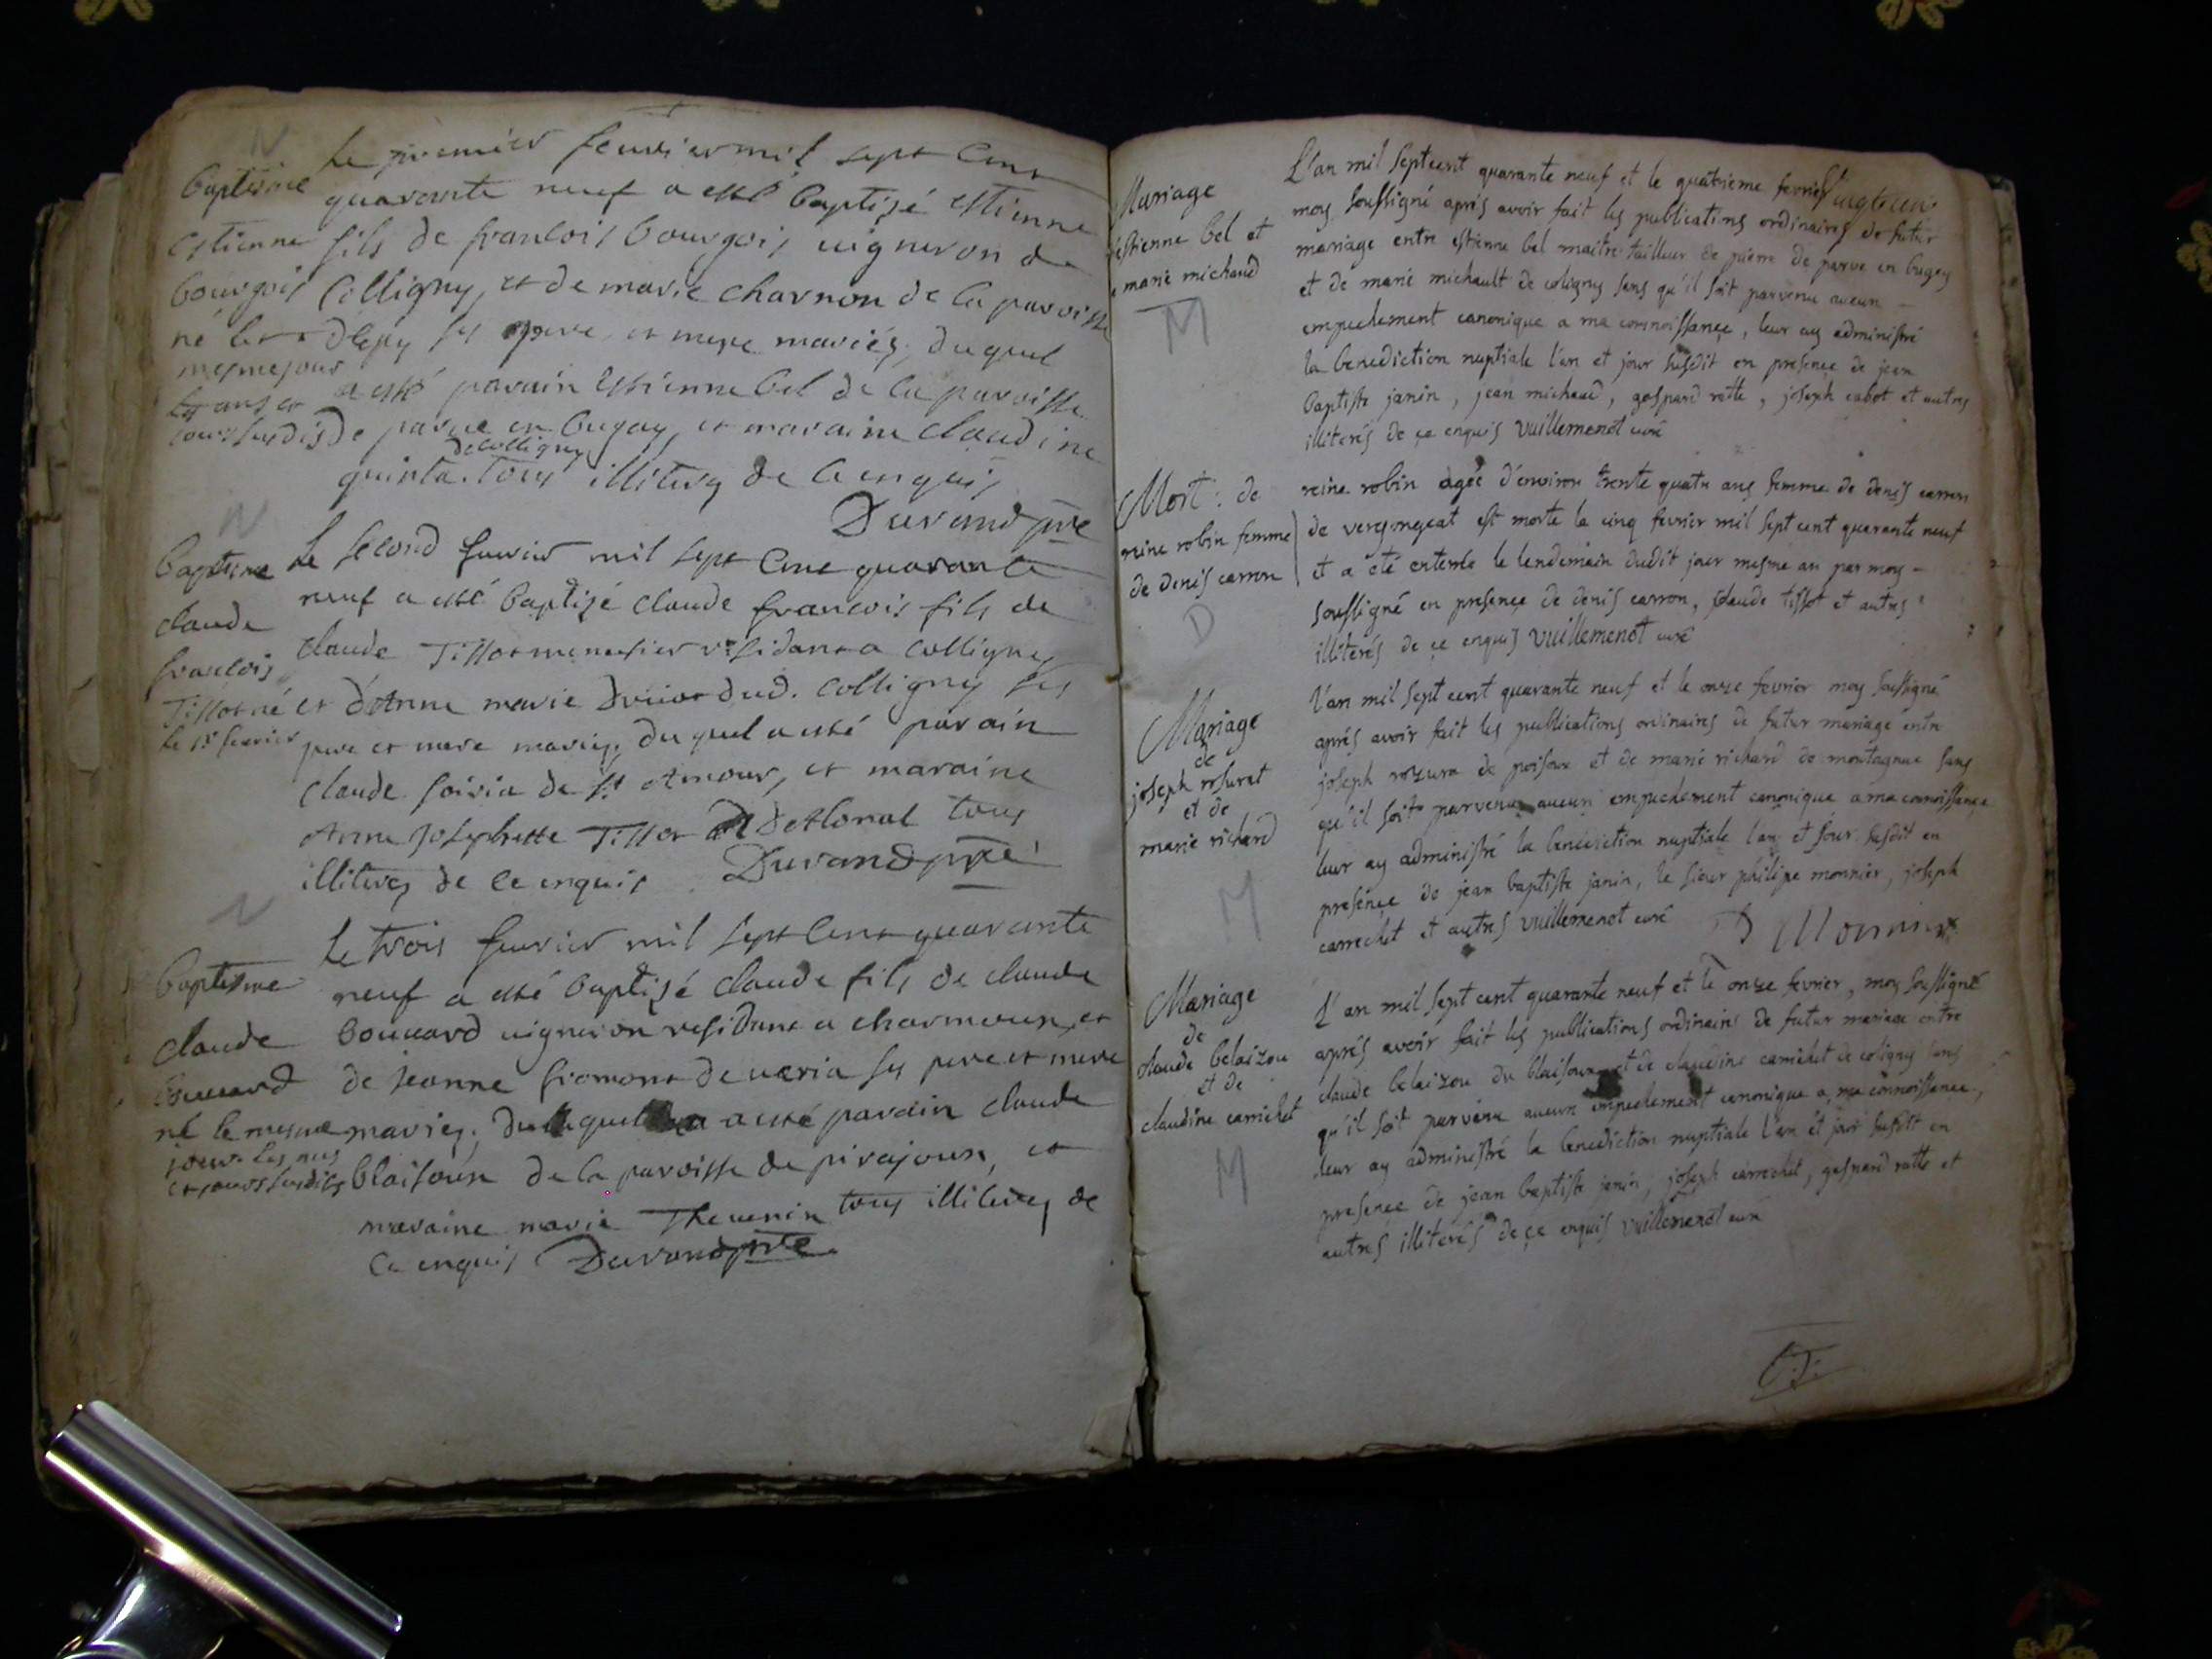 N
Baptisme
Estienne
bourgois
né le
mesme jour
les ans et
jour susdis
Le premier feuvrier mil sept Cent
quarante neuf a esté baptizé Estienne
fils de francois bourgois vigneron de
Colligny, et de marie charnon de la paroisse
ses pere et mere mariés, duquel
a esté parain Estienne bel de la paroisse
de parve en bugay, et maraine claudine
de Colligny
quinta. tous illiteres de ce enquis
Durand ptre
N
Baptisme
claude
francois
Tissot né
le 1r fevrier
Le second feuvrier mil sept Cent quarante
neuf a esté baptizé claude francois fils de
claude Tissot menusier residant a Colligny
et d'Anne marie dud. Colligny ses
pere et mere mariés, duquel a esté parain
claude de St Amour, et maraine
Anne Josephette Tissot tous
illiteres de ce enquis Durand ptre
N
Baptisme
claude
bouvard
né le mesme
jour les ans
et jours susdits
Le trois feuvrier mil sept Cent quarante
neuf a esté baptizé claude fils de claude
bouvard vigneron residant a charmoux, et
de Jeanne fromont de veria ses pere et mere
mariés, duquel a esté parain claude
blaisoux de la paroisse de pirajoux, et
maraine marie Thevenin tous illiteres de
ce enquis Durand ptre
Mariage
d'estienne bel et
marie michaud
M
L'an mil septcent quarante neuf et le quatrieme fevrier
moy soussigné apris avoir fait les publications ordinaires de futur
mariage entre estienne bel maitre tailleur de pierre de parve en bugey
et de marie michault de coligny sans qu'il soit parvenu aucun
empechement canonique a ma connoissance, leur ay administré
la benediction nuptiale l'an et jour susdit en presence de jean
baptiste janin, jean michaud, gaspard ratte, joseph cabot et autres
illiterés de ce enquis vuillemenot curé
Mort: de
reine robin femme
de denis carron
D
reine robin agée d'environ trente quatre ans femme de denis carron
de verjongeat est morte le cinq fevrier mil sept cent quarante neuf
et a été enterrée le lendemain dudit jour mesme an par moy
soussigné en presence de denis carron, claude tissot et autres
illiterés de ce enquis vuillemenot curé
Mariage
de
joseph rosurat
et de
marie richard
M
l'an mil sept cent quarante neuf et le onze fevrier moy soussigné
aprés avoir fait les publications ordinaires de futur mariage entre
joseph rozura de poisoux et de marie richard de montagna sans
qu'il soit parvenu aucun empechement canonique a ma connoissance
leur ay administré la benediction nuptiale l'an et jour susdit en
presence de jean baptiste janin, le sieur philipe monnier, joseph
carrechet et autres vuillemenot curé Monnier
Mariage
de
claude belaizou
et de
claudine carrichet
M
L'an mil sept cent quarante neuf et le onze fevrier, moy soussigné
aprés avoir fait les publications ordinaires de futur mariage entre
claude belaizou du blaisoux et de claudine carrichet de coligny sans
qu'il soit parvenu aucun empechement canonique a ma connoissance,
leur ay administré la benediction nuptiale l'an et jour susdit en
presence de jean baptiste janin, joseph carrechet, gaspard ratte et
autres illiterés de ce enquis vuillemenot curé